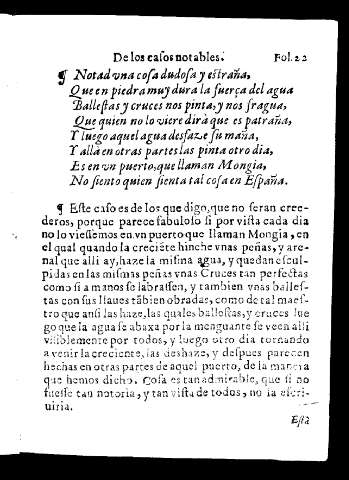 De los casos notables. Fol. 22
¶ Notad vna cosa dudosa y estraña,
Que en piedra muy dura la fuerça del agua
Ballestas y cruces nos pinta, y nos fragua,
Que quien no lo viere dirà que es patraña,
Y luego aquel agua desfaze su maña,
Y alla en otras partes las pinta otro dia,
Es en vn puerto, que llaman Mongia,
No siento quien sienta tal cosa en España.
¶ Este caso es de los que digo, que no seran cree-
deros, porque parece fabuloso si por vista cada dia
no lo viessemos en vn puerto que llaman Mongia, en
el qual quando la creciẽte hinche vnas peñas, y are-
nal que alli ay, haze la misma agua, y quedan escul-
pidas en las mismas peñas vnas Cruces tan perfectas
como si a manos se labrassen, y tambien vnas balles-
tas con sus llaues tãbien obradas, como de tal maes-
tro que ansi las haze, las quales ballestas, y cruces lue
go que la agua se abaxa por la menguante se veen alli
visiblemente por todos, y luego otro dia tornando
a venir la creciente, las deshaze, y despues parecen
hechas en otras partes de aquel puerto, de la manera
que hemos dicho. Cosa es tan admirable, que si no
fuesse tan notoria, y tan vista de todos, no la escri-
uiria.
Esta